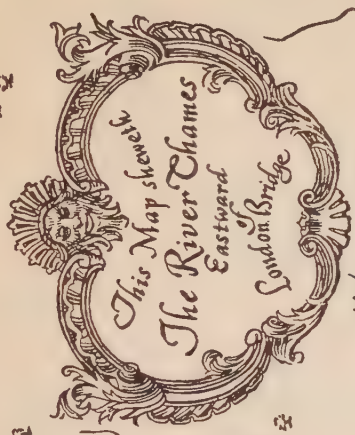 This Map sheweth
The River Thames
Eastward
of
London Bridge